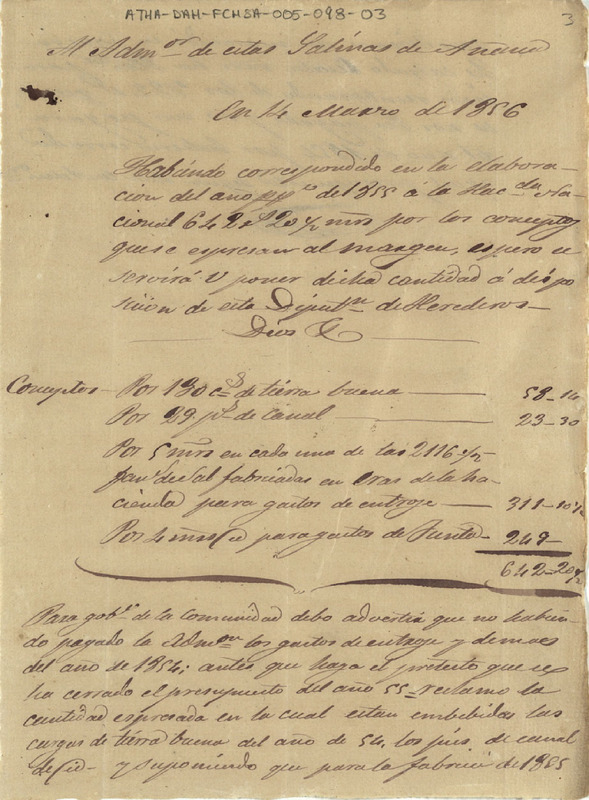 ATHA-DAH-FCHSA-005-098-03
3
Al Adm.or de estas Salinas de Añana
En 14 Marzo de 1856
Habiendo correspondido en la elabora-
cion del año pp.do de 1855 á la Hac.da Na-
cional 642 r.s 20 1/2 mrs por los conceptos
que se espresan al margen, espero se
servirá V poner dicha cantidad á dispo
sicion de esta Diput.on de Herederos-
Dios &
Conceptos - Por 130 c.s de tierra buena — 58-14
Por 29 p.s de Canal — 23-30
Por 5 mrs en cada una de las 2116 1/2
fan.s de Sal fabricadas en eras de la ha-
cienda para gastos de entroje — 311-10 1/2
Por 4 mrs id para gastos de Junta - 249-
642-20 1/2
Para gob.no de la Comunidad debo advertir que no habien-
do pagado la Adm.on los gastos de entroje y demas
del año de 1854; antes que haga el pretesto que se
ha cerrado el presupuesto del año 55 reclamo la
cantidad espresada en la cual estan embebidas las
cargas de tierra buena del año de 54, los pies de canal
de id- y suponiendo que para la fabric.n de 1855